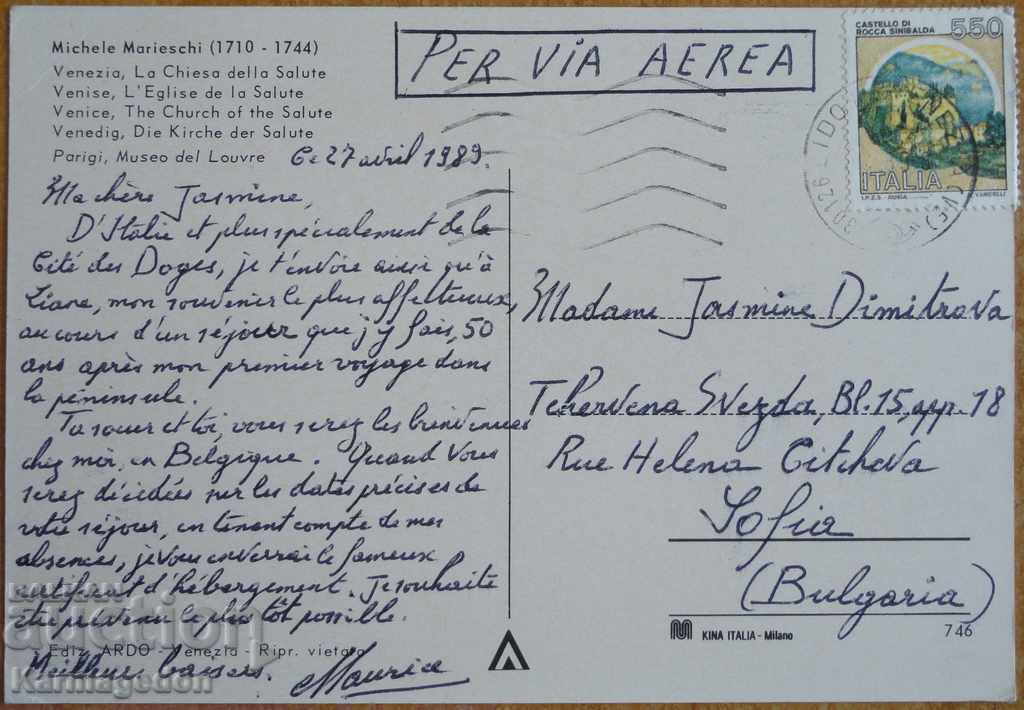 Michele Marieschi (1710 - 1744)
Venezia, La Chiesa della Salute
Venise, L'Eglise de la Salute
Venice, The Church of the Salute
Venedig, Die Kirche der Salute
Parigi, Museo del Louvre
Ce 27 avril 1989.
Ma chère Jasmine,
D'Italie et plus spécialement de la
Cité des Doges, je t'envoie ainsi qu'à
Liane, mon souvenir le plus affectueux,
au cours d'un séjour que j'y fais, 50
ans après mon premier voyage dans
la péninsule.
Ta soeur et toi, vous serez les bienvenues
chez moi, en Belgique. Quand vous
serez décidées sur les dates précises de
votre séjour, en tenant compte de mes
absences, je vous enverrai le fameux
certificat d'hébergement. Je souhaite
être prévenu le plus tôt possible.
Meilleurs baisers. Maurice
Ediz. ARDO - Venezia - Ripr. vietata
PER VIA AEREA
CASTELLO DI
ROCCA SINIBALDA
550
ITALIA
I.P.Z.S. - ROMA
VANGELLI
LIDO
(VE)
Madame Jasmine Dimitrova
Tchervena Svezda, Bl. 15, app. 18
Rue Helena Gitcheva
Sofia
(Bulgaria)
KINA ITALIA - Milano
746
auction
Karmagedon